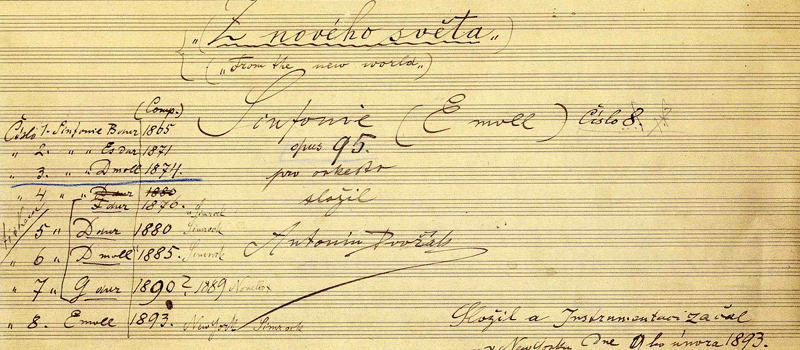 „Z nového světa„
(„From the new world„)
Sinfonie (E moll) Číslo 8.
opus 95.
pro orkestr
složil
Antonín Dvořák
(Comp.)
Číslo 1. Sinfonie B dur 1865
„ 2. „ „ Es dur 1871
„ 3. „ „ D moll 1874.
„ 4 „ „ D dur 1880
F dur 1876. Simrock
„ 5 „ D dur 1880 Simrock
„ 6 „ D moll 1885. Simrock
„ 7 „ G dur 1890 ? 1889 Novello
„ 8. E moll 1893. New York Simrock
Složil a Instrumentaci začal
v New Yorku dne 9ho února 1893.